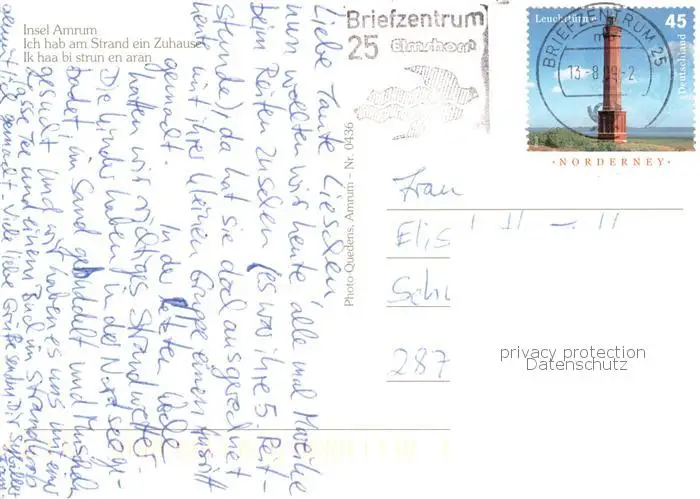 Insel Amrum
Ich hab am Strand ein Zuhause
Ik haa bi strun en aran
Briefzentrum
25 Elmshorn
Leuchttürme
45
Deutschland
BRIEFZENTRUM 25
13.-8.09.-2
· NORDERNEY ·
Photo-Quedens, Amrum – Nr. 0436
Liebe Tante Lieschen
nun wollten wir heute alle mal Mareike
beim Reiten zusehen (es war ihre 5. Reit-
stunde), da hat sie doch ausgerechnet
heute mit ihrer kleinen Gruppe einen Ausritt
gemacht. In der letzten Woche
hatten wir richtiges Strandwetter.
Die Kinder haben in der Nordsee ge-
badet, im Sand gebuddelt und Muscheln
gesucht und wir haben es uns mit einer
Tasse Tee und einem Buch im Strandkorb
gemütlich gemacht. Viele liebe Grüße senden Dir
Frau
Elis
Sch
287
privacy protection
Datenschutz